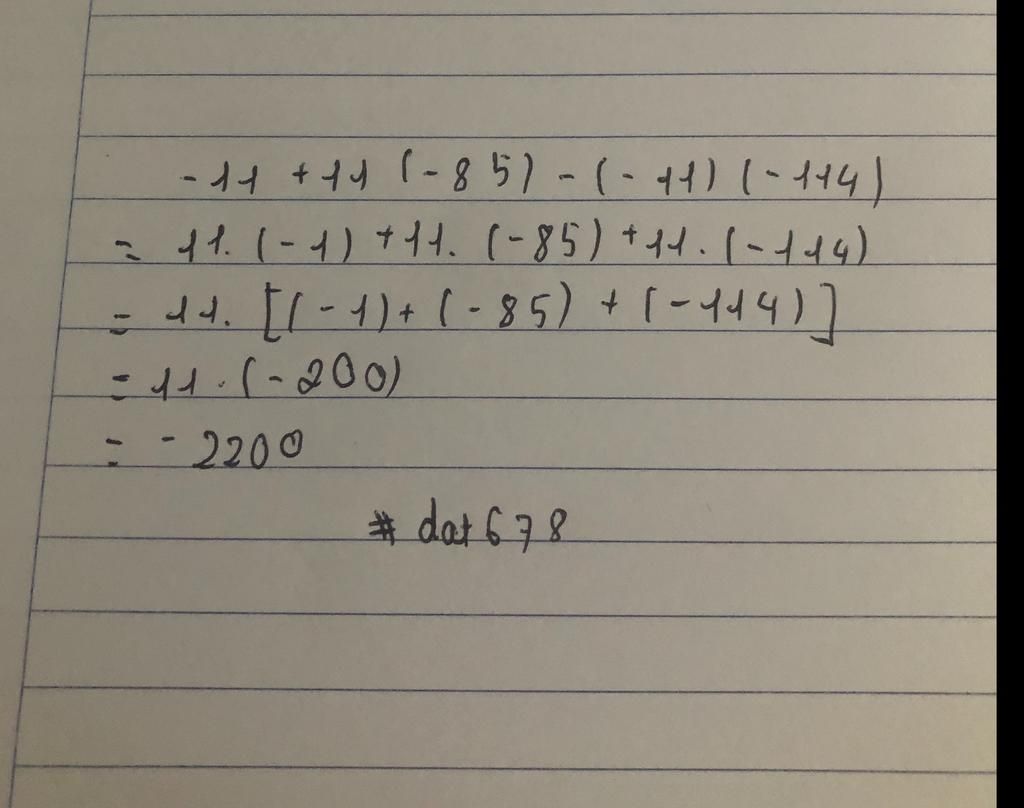 -11 +11 (-85) - (-11) (-114)
= 11. (-1) +11. (-85) +11. (-114)
= 11. [(-1)+ (-85) + (-114)]
= 11 . (-200)
= -2200
# dat678